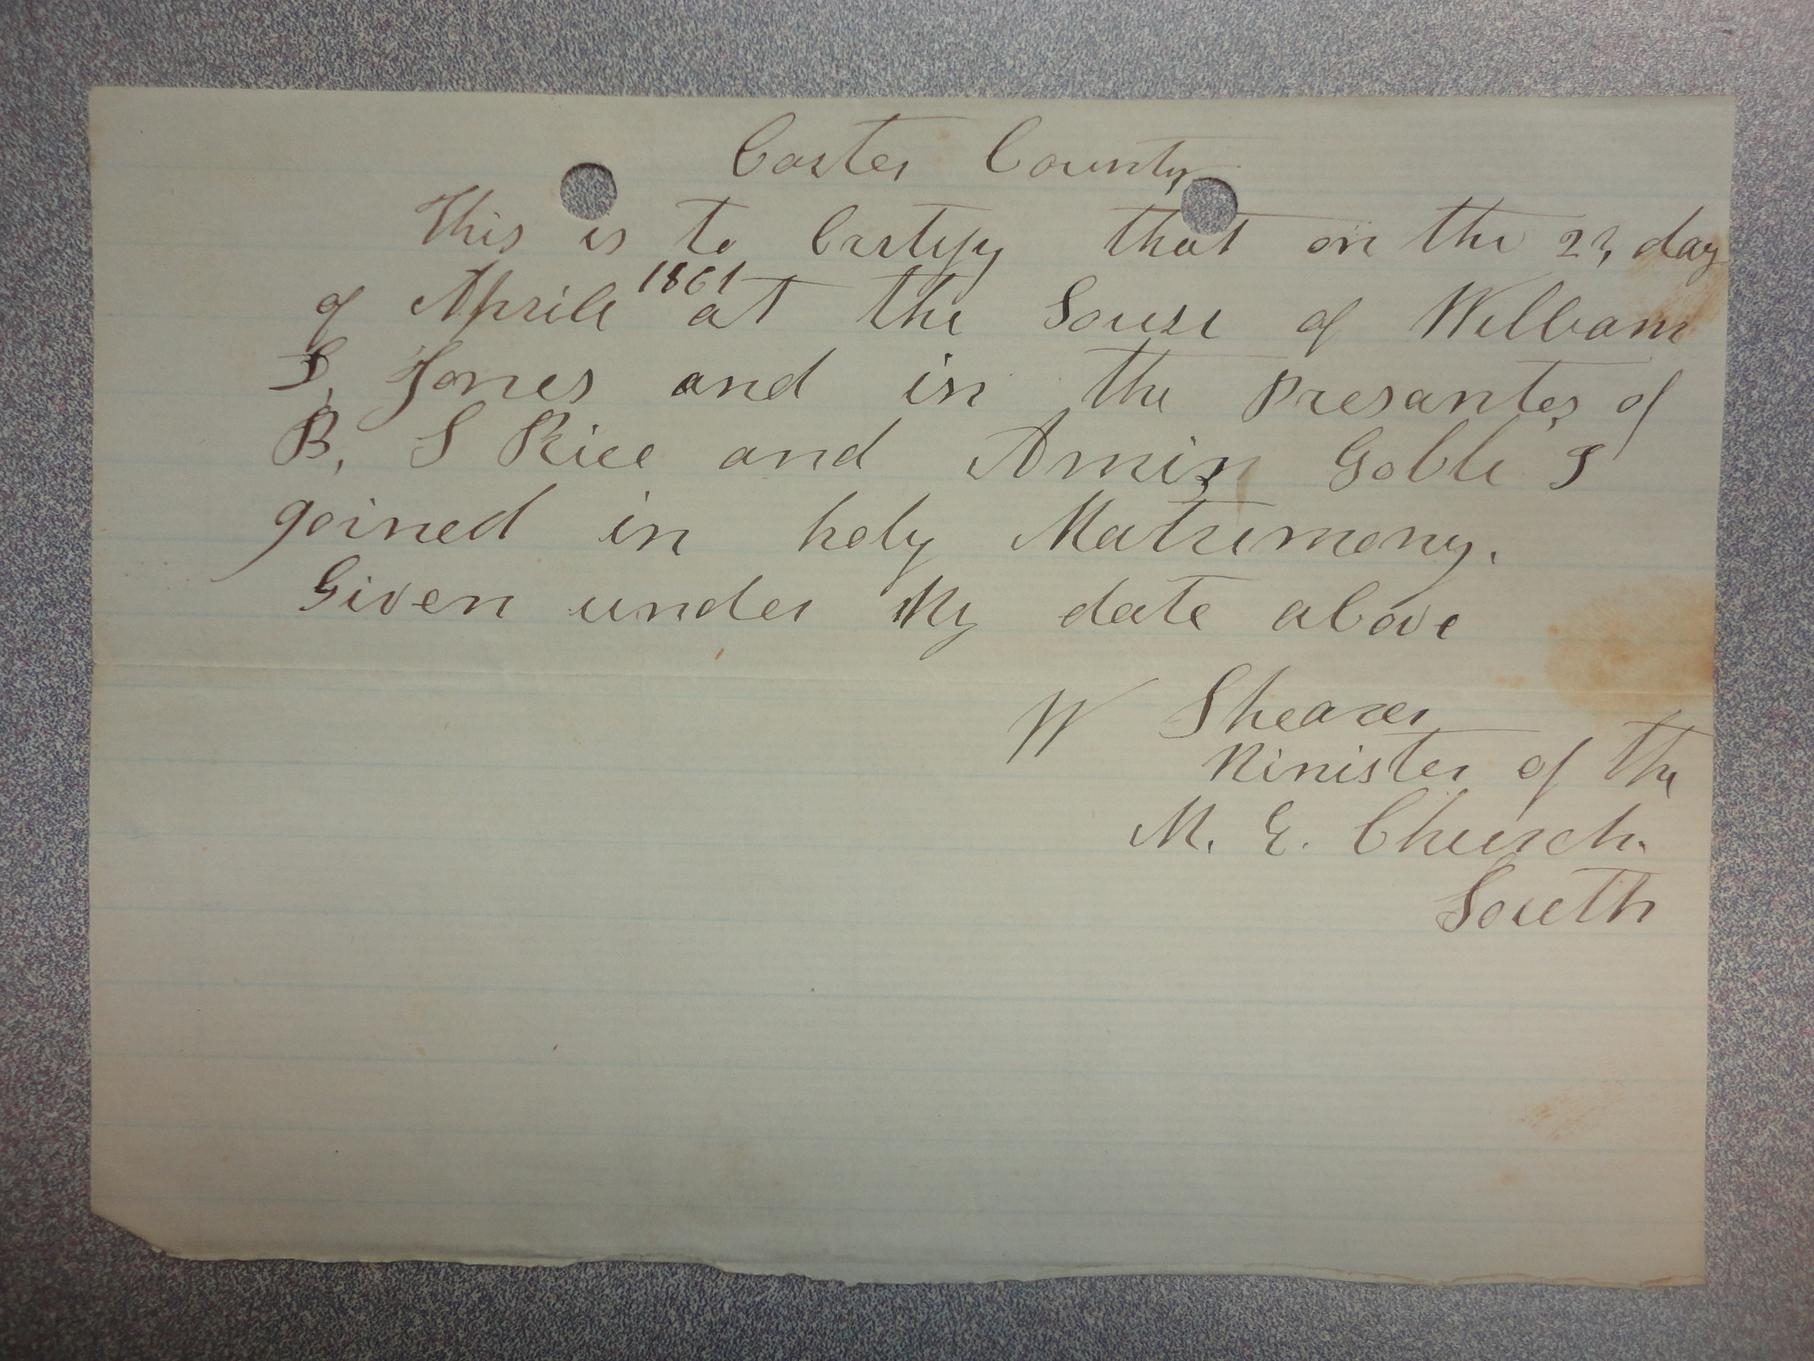 Carter County
This is to Certify that on the 23 day
of Aprile 1861 at the Souse of William
S. Jones and in the presantes of
B, S Rice and Amin Goble I
goined in holy Matrimony.
Given under My date above
W Shearer
Minister of the
M. E. Church.
South